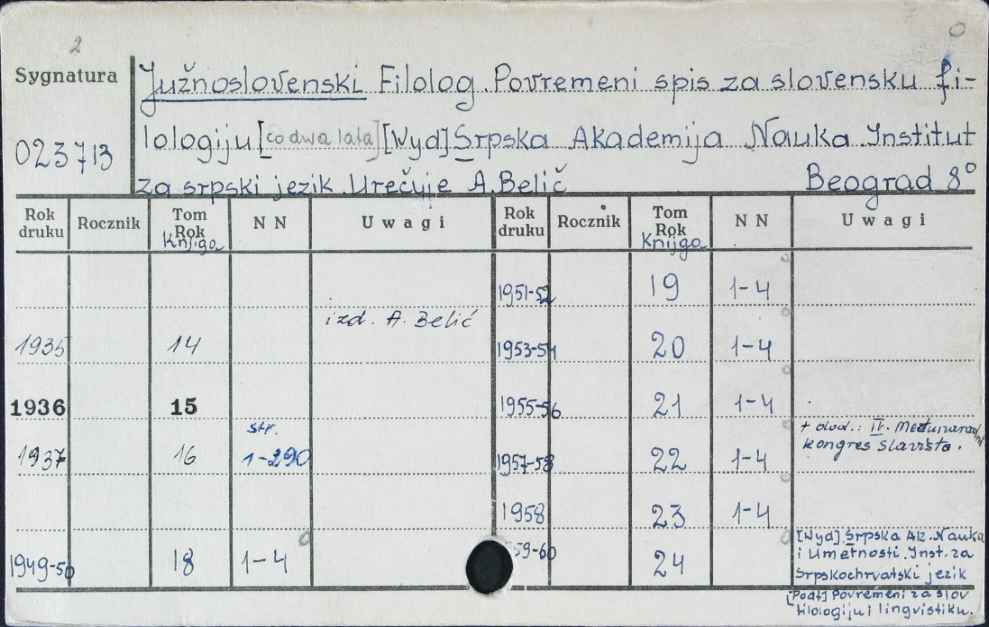 2
Sygnatura
023713
Južnoslovenski Filolog. Povremeni spis za slovensku fi-
lologiju [co dwa lata] [Wyd] Srpska Akademija Nauka. Institut
za srpski jezik. Urečuje A. Belič Beograd 8°
Rok druku Rocznik Tom Rok Knjiga N N Uwagi Rok druku Rocznik Tom Rok Knijga N N Uwagi
1951-52 19 1-4
izd. A. Belić
1935 14 1953-54 20 1-4
1936 15 1955-56 21 1-4
str. + dod.: IV. Međunarod
1937 16 1-290 1957-58 22 1-4 kongres slavista.
1958 23 1-4
[Wyd] Srpska Ak. Nauka
1949-50 18 1-4 59-60 24 i Umetnosti. Inst. za
Srpskochrvatski jezik
[Podt] Povremeni za slov
filologiju i lingvistiku.